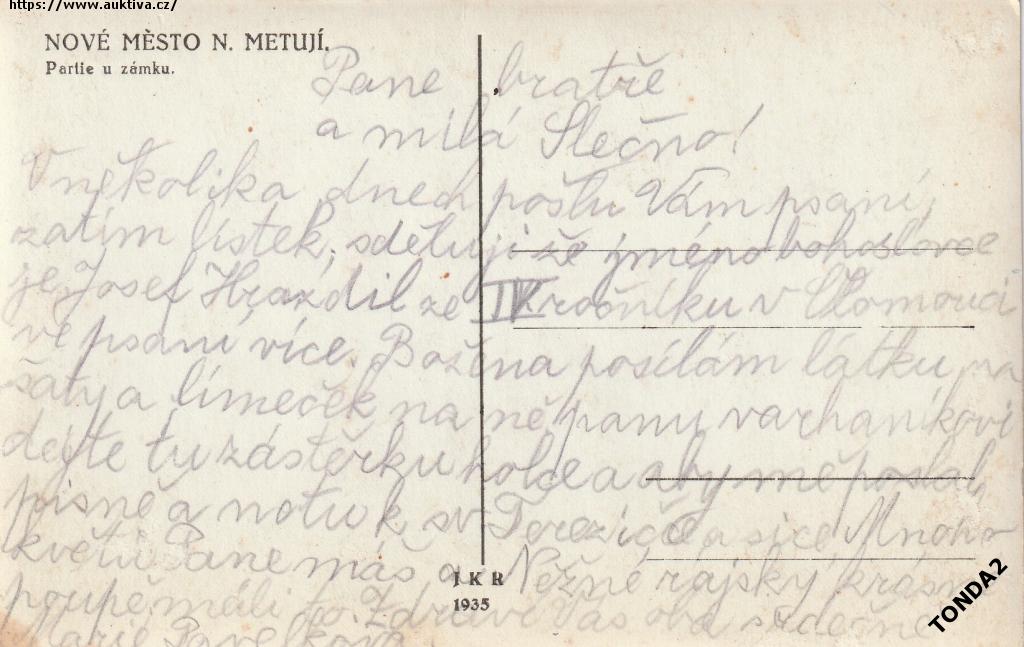 https://www.auktiva.cz/
NOVÉ MĚSTO N. METUJÍ.
Partie u zámku.
Pane bratře
a milá Slečno!
V několika dnech pošlu Vám psaní,
zatím lístek, sděluji že jméno bohoslovce
je Josef Hrazdil ze IV ročníku v Olomouci
ve psaní více. Božena posílám látku na
šaty a límeček na ně panu varhaníkovi
dejte tu zástěrku holce a aby mě poslal
písně a notu k sv Terezičce a sice Mnoho
květů Pane máš a Něžné rajský krásné
poupě má to Zdraví Vás oba srdečně
Marie Pavelková
J K R
1935
TONDA2